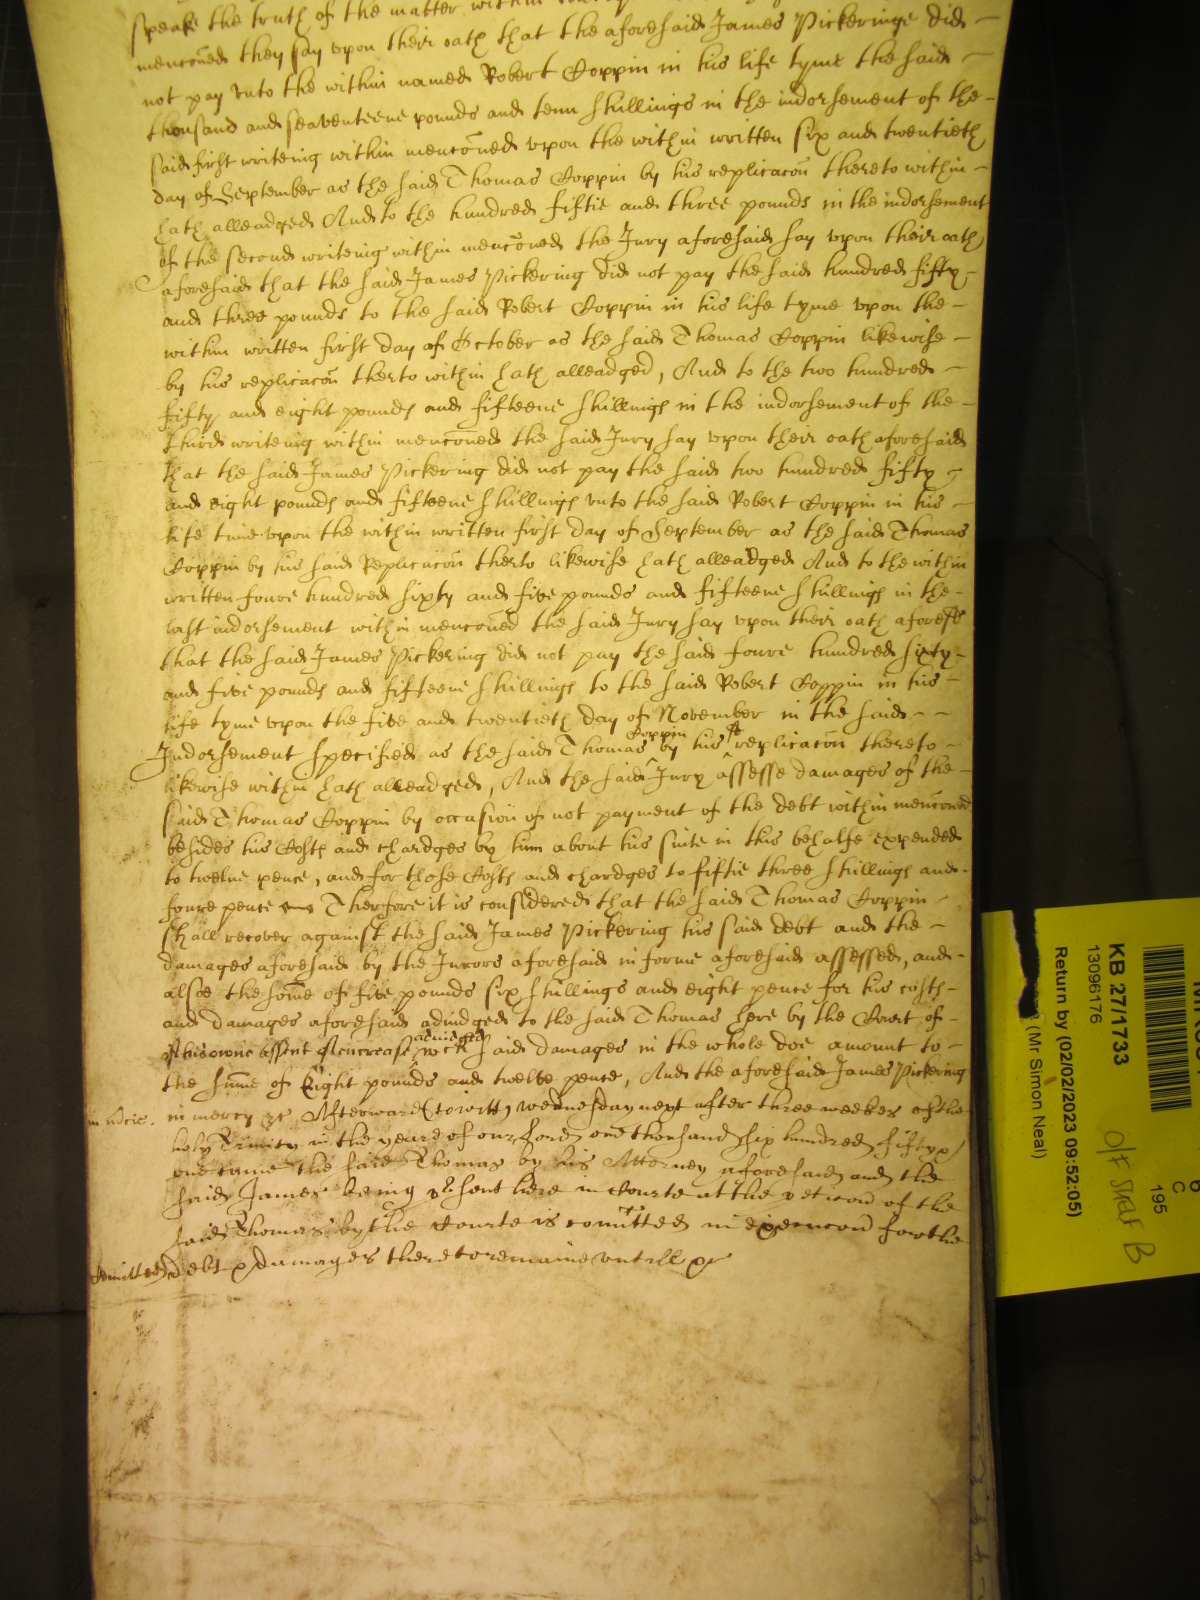 speake the truth of the matter within
menconed they say upon their oath that the aforesaid James Pickeringe did
not pay unto the within named Robert Coppin in his life tyme the said
thousand and seaventeene pounds and tenn shillings in the indorsement of the
said first writeing within menconed upon the within written six and twentieth
day of September as the said Thomas Coppin by his replicacon thereto within
hath alleadged And to the hundred fiftie and three pounds in the indorsement
of the second writeing within menconed the Jury aforesaid say upon their oath
aforesaid that the said James Pickering did not pay the said hundred fifty
and three pounds to the said Robert Coppin in his life tyme upon the
within written first day of October as the said Thomas Coppin likewise
by his replicacon therto within hath alleadged, And to the two hundred
fifty and eight pounds and fifteene shillings in the indorsement of the
third writeing within menconed the said Jury say upon their oath aforesaid
that the said James Pickering did not pay the said two hundred fifty
and eight pounds and fifteene shillings unto the said Robert Coppin in his
life time upon the within written first day of September as the said Thomas
Coppin by his said Replicacon therto likewise hath alleadged And to the within
written foure hundred sixty and five pounds and fifteene shillings in the
last indorsement within menconed the said Jury say upon their oath aforesd
that the said James Pickering did not pay the said foure hundred sixty
and five pounds and fifteene shillings to the said Robert Coppin in his
life tyme upon the five and twentieth day of November in the said
Indorsement specified as the said Thomas Coppin by his sd replicacon thereto
likewise within hath alleadged, And the said Jury assesse damages of the
said Thomas Coppin by occasion of not payment of the debt within menconed
besides his Costs and chardges by him about his suite in this behalfe expended
to twelve pence, and for those Costs and chardges to fiftie three shillings and
foure pence Therfore it is considered that the said Thomas Coppin
shall recover against the said James Pickering his said debt and the
damages aforesaid by the Jurors aforesaid in forme aforesaid assessed, and
alsoe the some of five pounds six shillings and eight pence for his costs
and damages aforesaid adiudged to the said Thomas here by the Court of
his owne assent of encrease adiudged wch said damages in the whole doe amount to
the summe of Eight pounds and twelve pence, And the aforesaid James Pickering
in mercy &c Afterward (to witt) wednesday next after three weekes of the
holy Trinity in the yeare of our Lord one thousand six hundred fifty &
one came the said Thomas by his Attorney aforesaid and the
said James being psent here in Courte at the peticon of the
said Thomas by the Courte is comitted in execucon for the
debt & damages there to remaine untill &c
KB 27/1733
13096176
Return by (02/02/2023 09:52:05)
(Mr Simon Neal)
195
C
6
O/F Shelf B